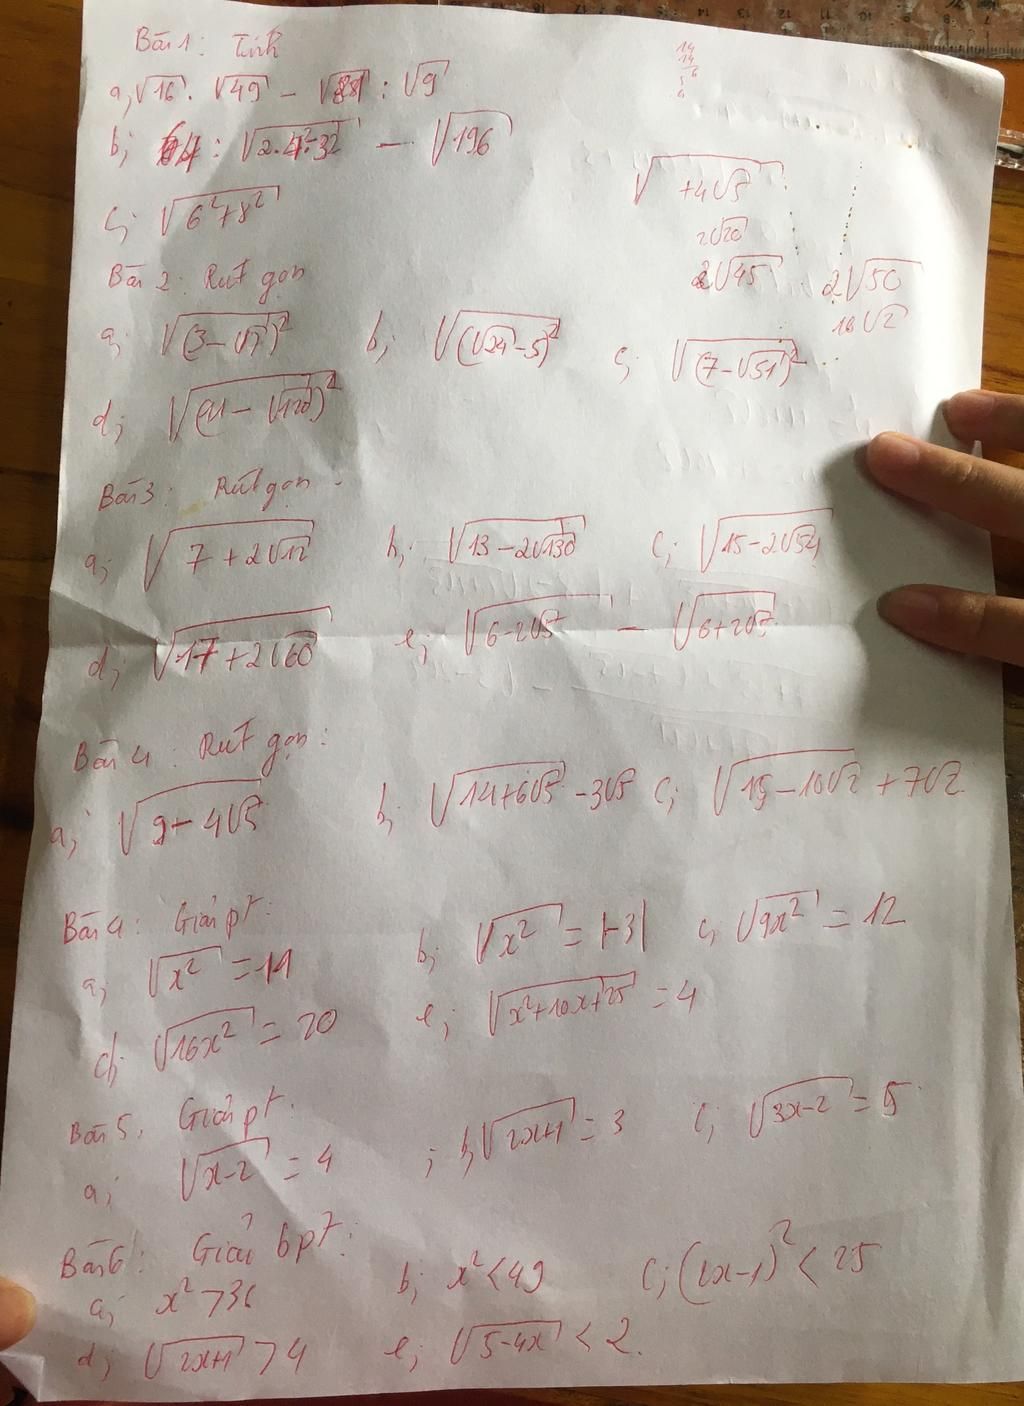 Bài 1: Tính
a; √16 . √49 - √81 : √9
b; 64 : √(2.4².32) - √196
c; √(6²+8²)
14
14
56
√( +4√5)
2√20
2√45 2√50
10√2
Bài 2: Rút gọn
a; √(3-√7)² b; √(√24-5)² c; √(7-√51)²
d; √(11-√120)²
Bài 3: Rút gọn
a; √(7+2√12) b; √(13-2√30) c; √(15-2√54)
d; √(17+2√60) e; √(6-2√5) - √(6+2√5)
Bài 4: Rút gọn:
a; √(9-4√5) b; √(14+6√5) - 3√5 c; √(19-10√2) + 7√2
Bài 4: Giải pt:
a; √x² = 11 b; √x² = |-3| c; √9x² = 12
d; √16x² = 20 e; √(x²+10x+25) = 4
Bài 5: Giải pt:
a; √(x-2) = 4 ; b; √(2x+1) = 3 c; √(3x-2) = 5
Bài 6: Giải bpt:
a; x² > 36 b; x² < 49 c; (2x-1)² < 25
d; √(2x+1) > 4 e; √(5-4x) < 2.